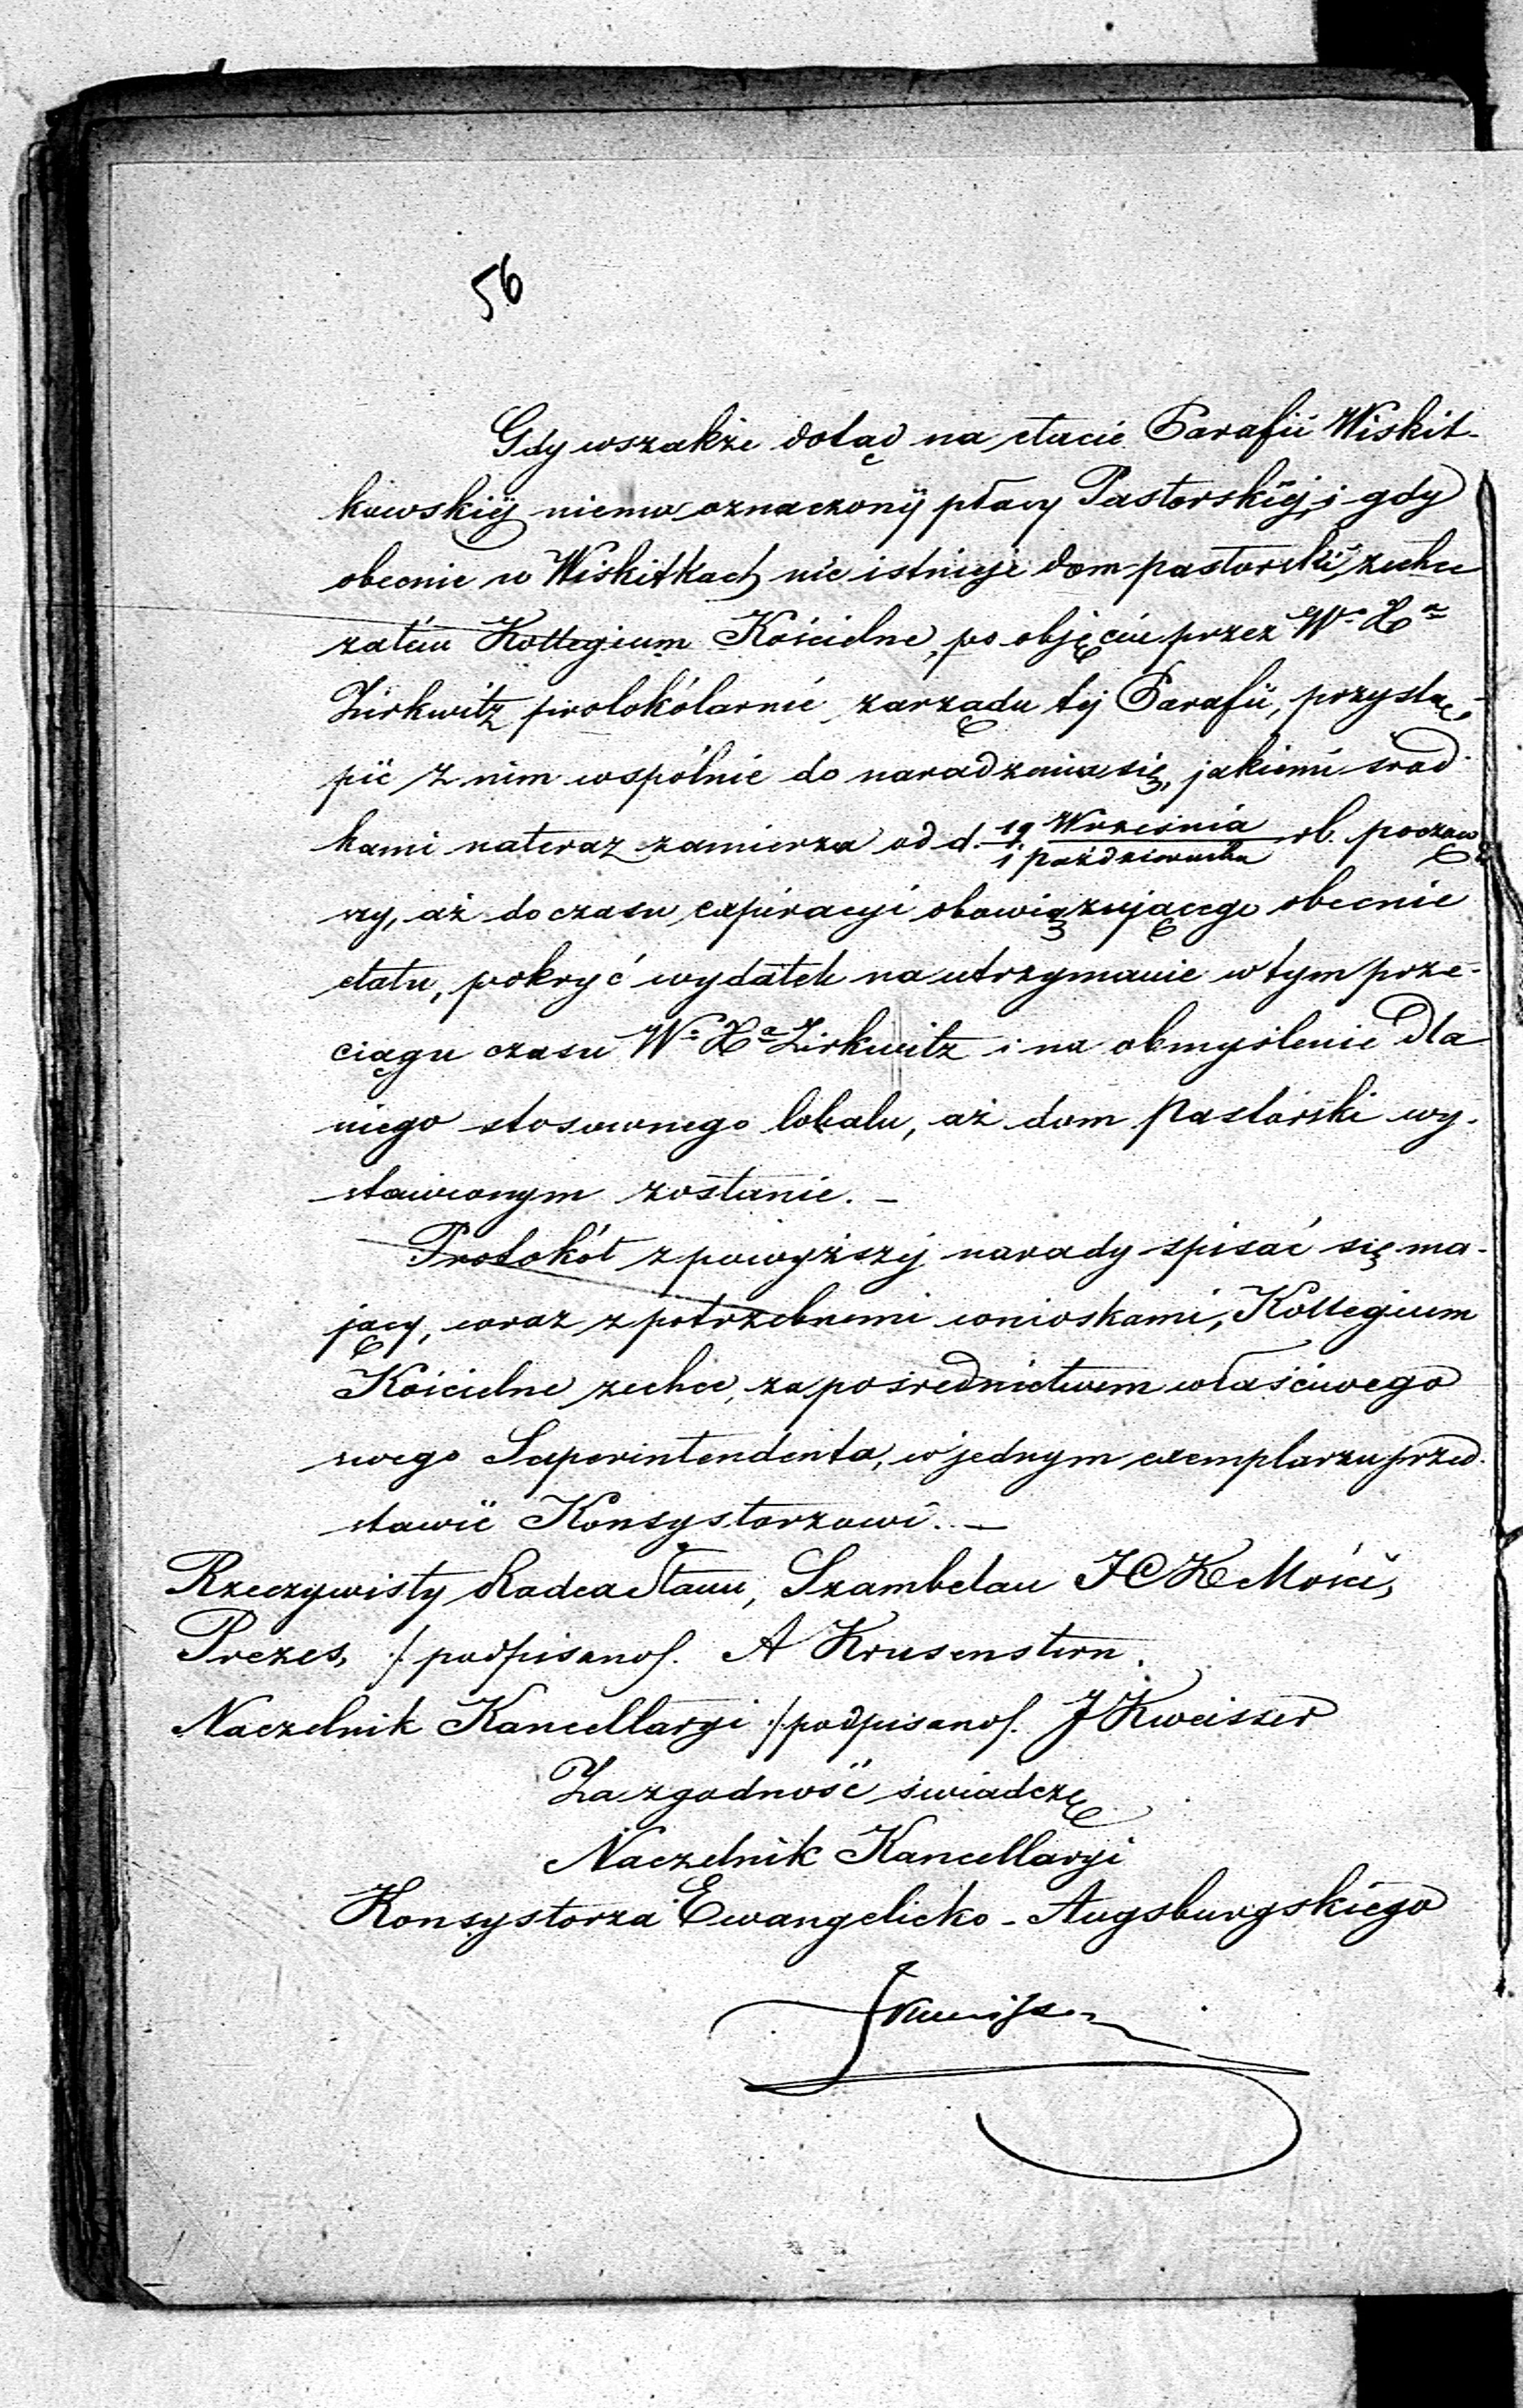 56
Gdy wszakże dotąd na etacie Parafii Wiskit-
kowskiéj niema oznaczonéj płacy Pastorskiéj, i gdy
obecnie w Wiskitkach nie istnieje dom pastorski, zechce
zatém Kollegium Kościelne, po objęciu przez Wº Xª
Zirkwitz protokólarnie zarządu téj Parafii, przystą-
pić z nim wspólnie do naradzenia się, jakiemi środ-
kami nateraz zamierza od d. 19 Września / 1 Października rb. począw-
szy, aż do czasu expiracyi obowiązującego obecnie
etatu, pokryć wydatek na utrzymanie w tym prze-
ciągu czasu Wº Xª Zirkwitz i na obmyślenie dla
niego stosownego lokalu, aż dom Pastorski wy-
stawionym zostanie. –
Protokół z powyższéj narady spisać się ma-
jący, wraz z potrzebnemi wnioskami, Kollegium
Kościelne zechce, za pośrednictwem właściwego
swego Superintendenta, w jednym exemplarzu przed-
stawić Konsystorzowi. –
Rzeczywisty Radca Stanu, Szambelan JCK Mości,
Prezes, /podpisano/. A Krusenstern.
Naczelnik Kancellaryi /podpisano/. J Kweisser
Za zgodność świadczę
Naczelnik Kancellaryi
Konsystorza Ewangelicko-Augsburgskiego
JKweisser